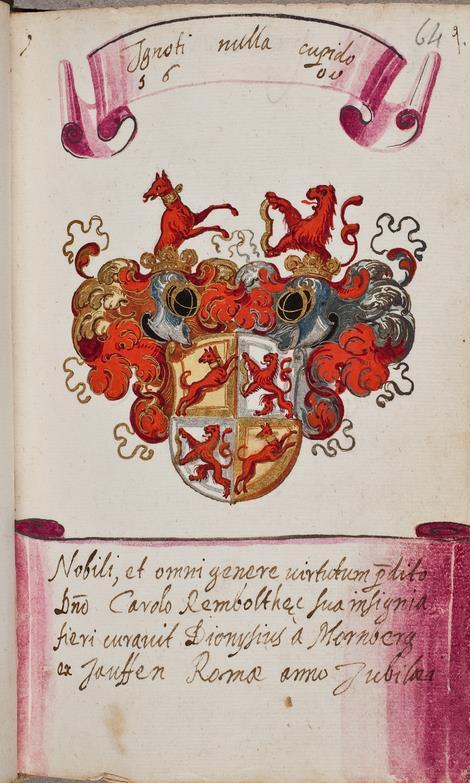 64 9.
Ignoti nulla cupido
1 6 00
Nobili, et omni genere uirtutum p̄dito
Dnō Carolo Rembolt hęc sua insignia
fieri curauit Dionysius à Mornberg
ex Jauffen Romæ anno Jubilæi